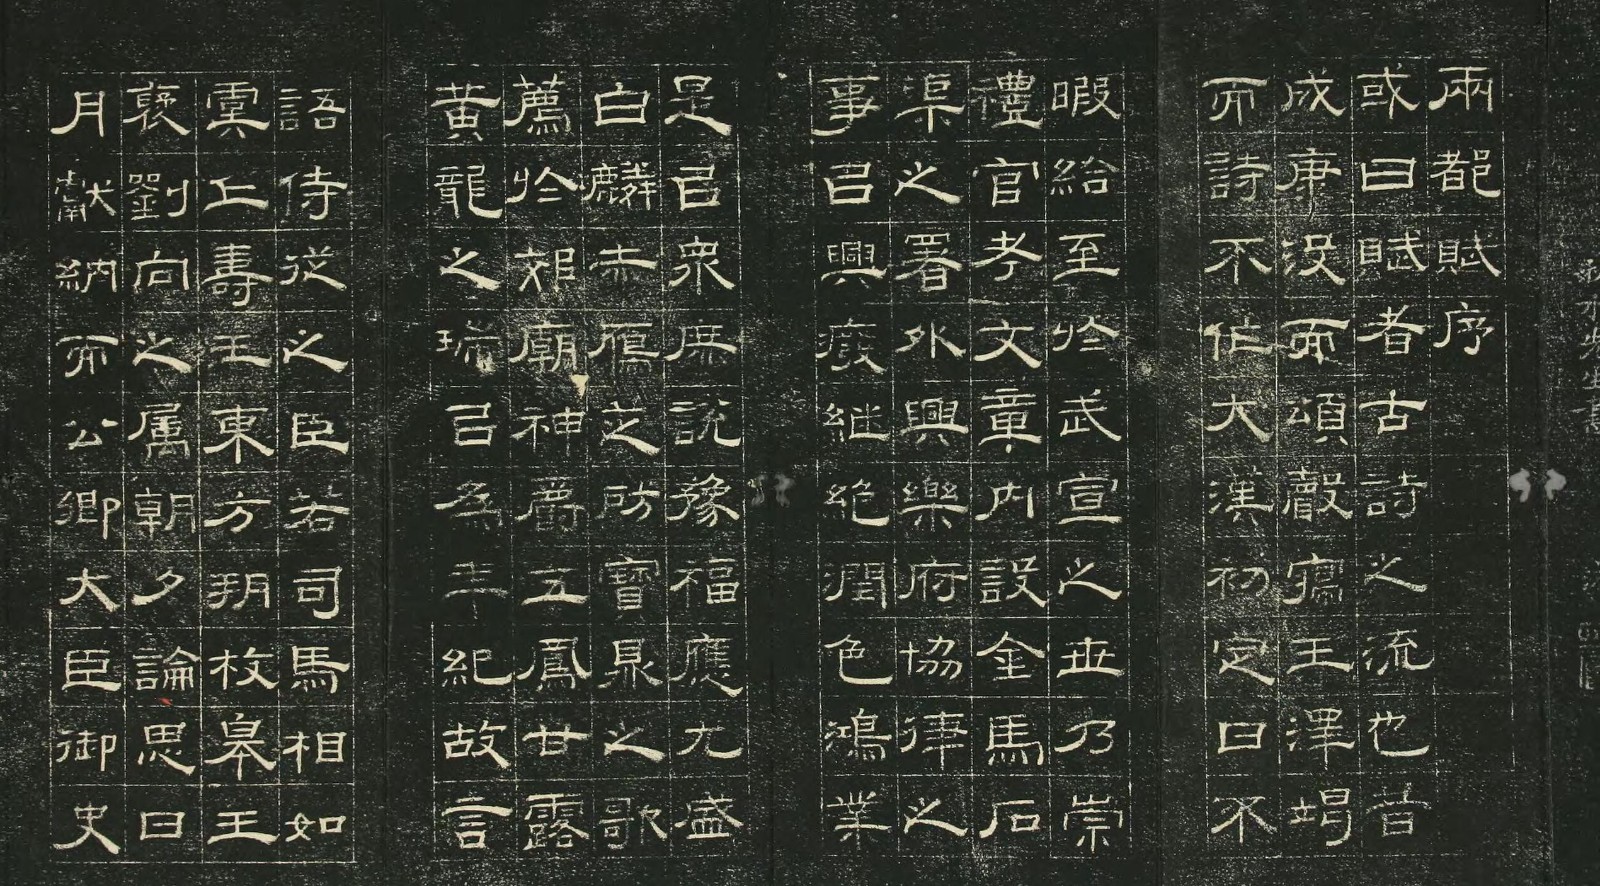 兩都賦序
或曰賦者古詩之流也昔
成康没而頌聲寢王澤竭
而詩不作大漢初定日不
暇給至於武宣之世乃崇
禮官考文章內設金馬石
渠之署外興樂府協律之
事以興廢繼絕潤色鴻業
是以衆庶說豫福應尤盛
白麟赤鴈芝房寶鼎之歌
薦於郊廟神爵五鳳甘露
黃龍之瑞以為年紀故言
語侍從之臣若司馬相如
虞丘壽王東方朔枚皋王
褒劉向之属朝夕論思日
月獻納而公卿大臣御史